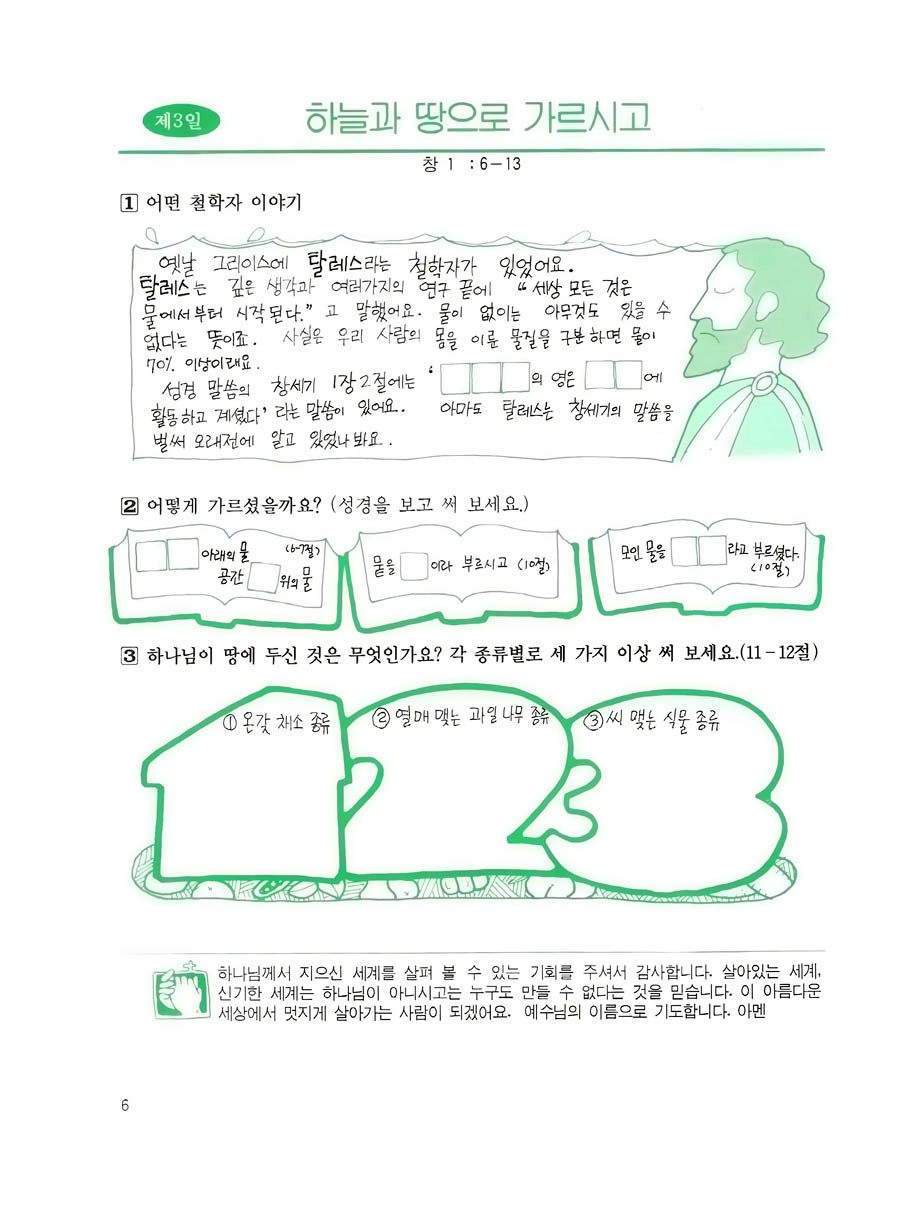 제3일
하늘과 땅으로 가르시고
창 1 : 6-13
1 어떤 철학자 이야기
옛날 그리이스에 탈레스라는 철학자가 있었어요.
탈레스는 깊은 생각과 여러가지의 연구 끝에 "세상 모든 것은
물에서부터 시작된다." 고 말했어요. 물이 없이는 아무것도 있을 수
없다는 뜻이죠. 사실은 우리 사람의 몸을 이룬 물질을 구분하면 물이
70% 이상이래요.
성경 말씀의 창세기 1장 2절에는 '□□□의 영은 □□에
활동하고 계셨다' 라는 말씀이 있어요. 아마도 탈레스는 창세기의 말씀을
벌써 오래전에 알고 있었나 봐요.
2 어떻게 가르셨을까요? (성경을 보고 써 보세요.)
□□ 아래의 물 (6-7절)
공간 □ 위의 물
뭍을 □이라 부르시고 (10절)
모인 물을 □□라고 부르셨다.
(10절)
3 하나님이 땅에 두신 것은 무엇인가요? 각 종류별로 세 가지 이상 써 보세요.(11-12절)
① 온갖 채소 종류
② 열매 맺는 과일 나무 종류
③ 씨 맺는 식물 종류
하나님께서 지으신 세계를 살펴 볼 수 있는 기회를 주셔서 감사합니다. 살아있는 세계,
신기한 세계는 하나님이 아니시고는 누구도 만들 수 없다는 것을 믿습니다. 이 아름다운
세상에서 멋지게 살아가는 사람이 되겠어요. 예수님의 이름으로 기도합니다. 아멘
6